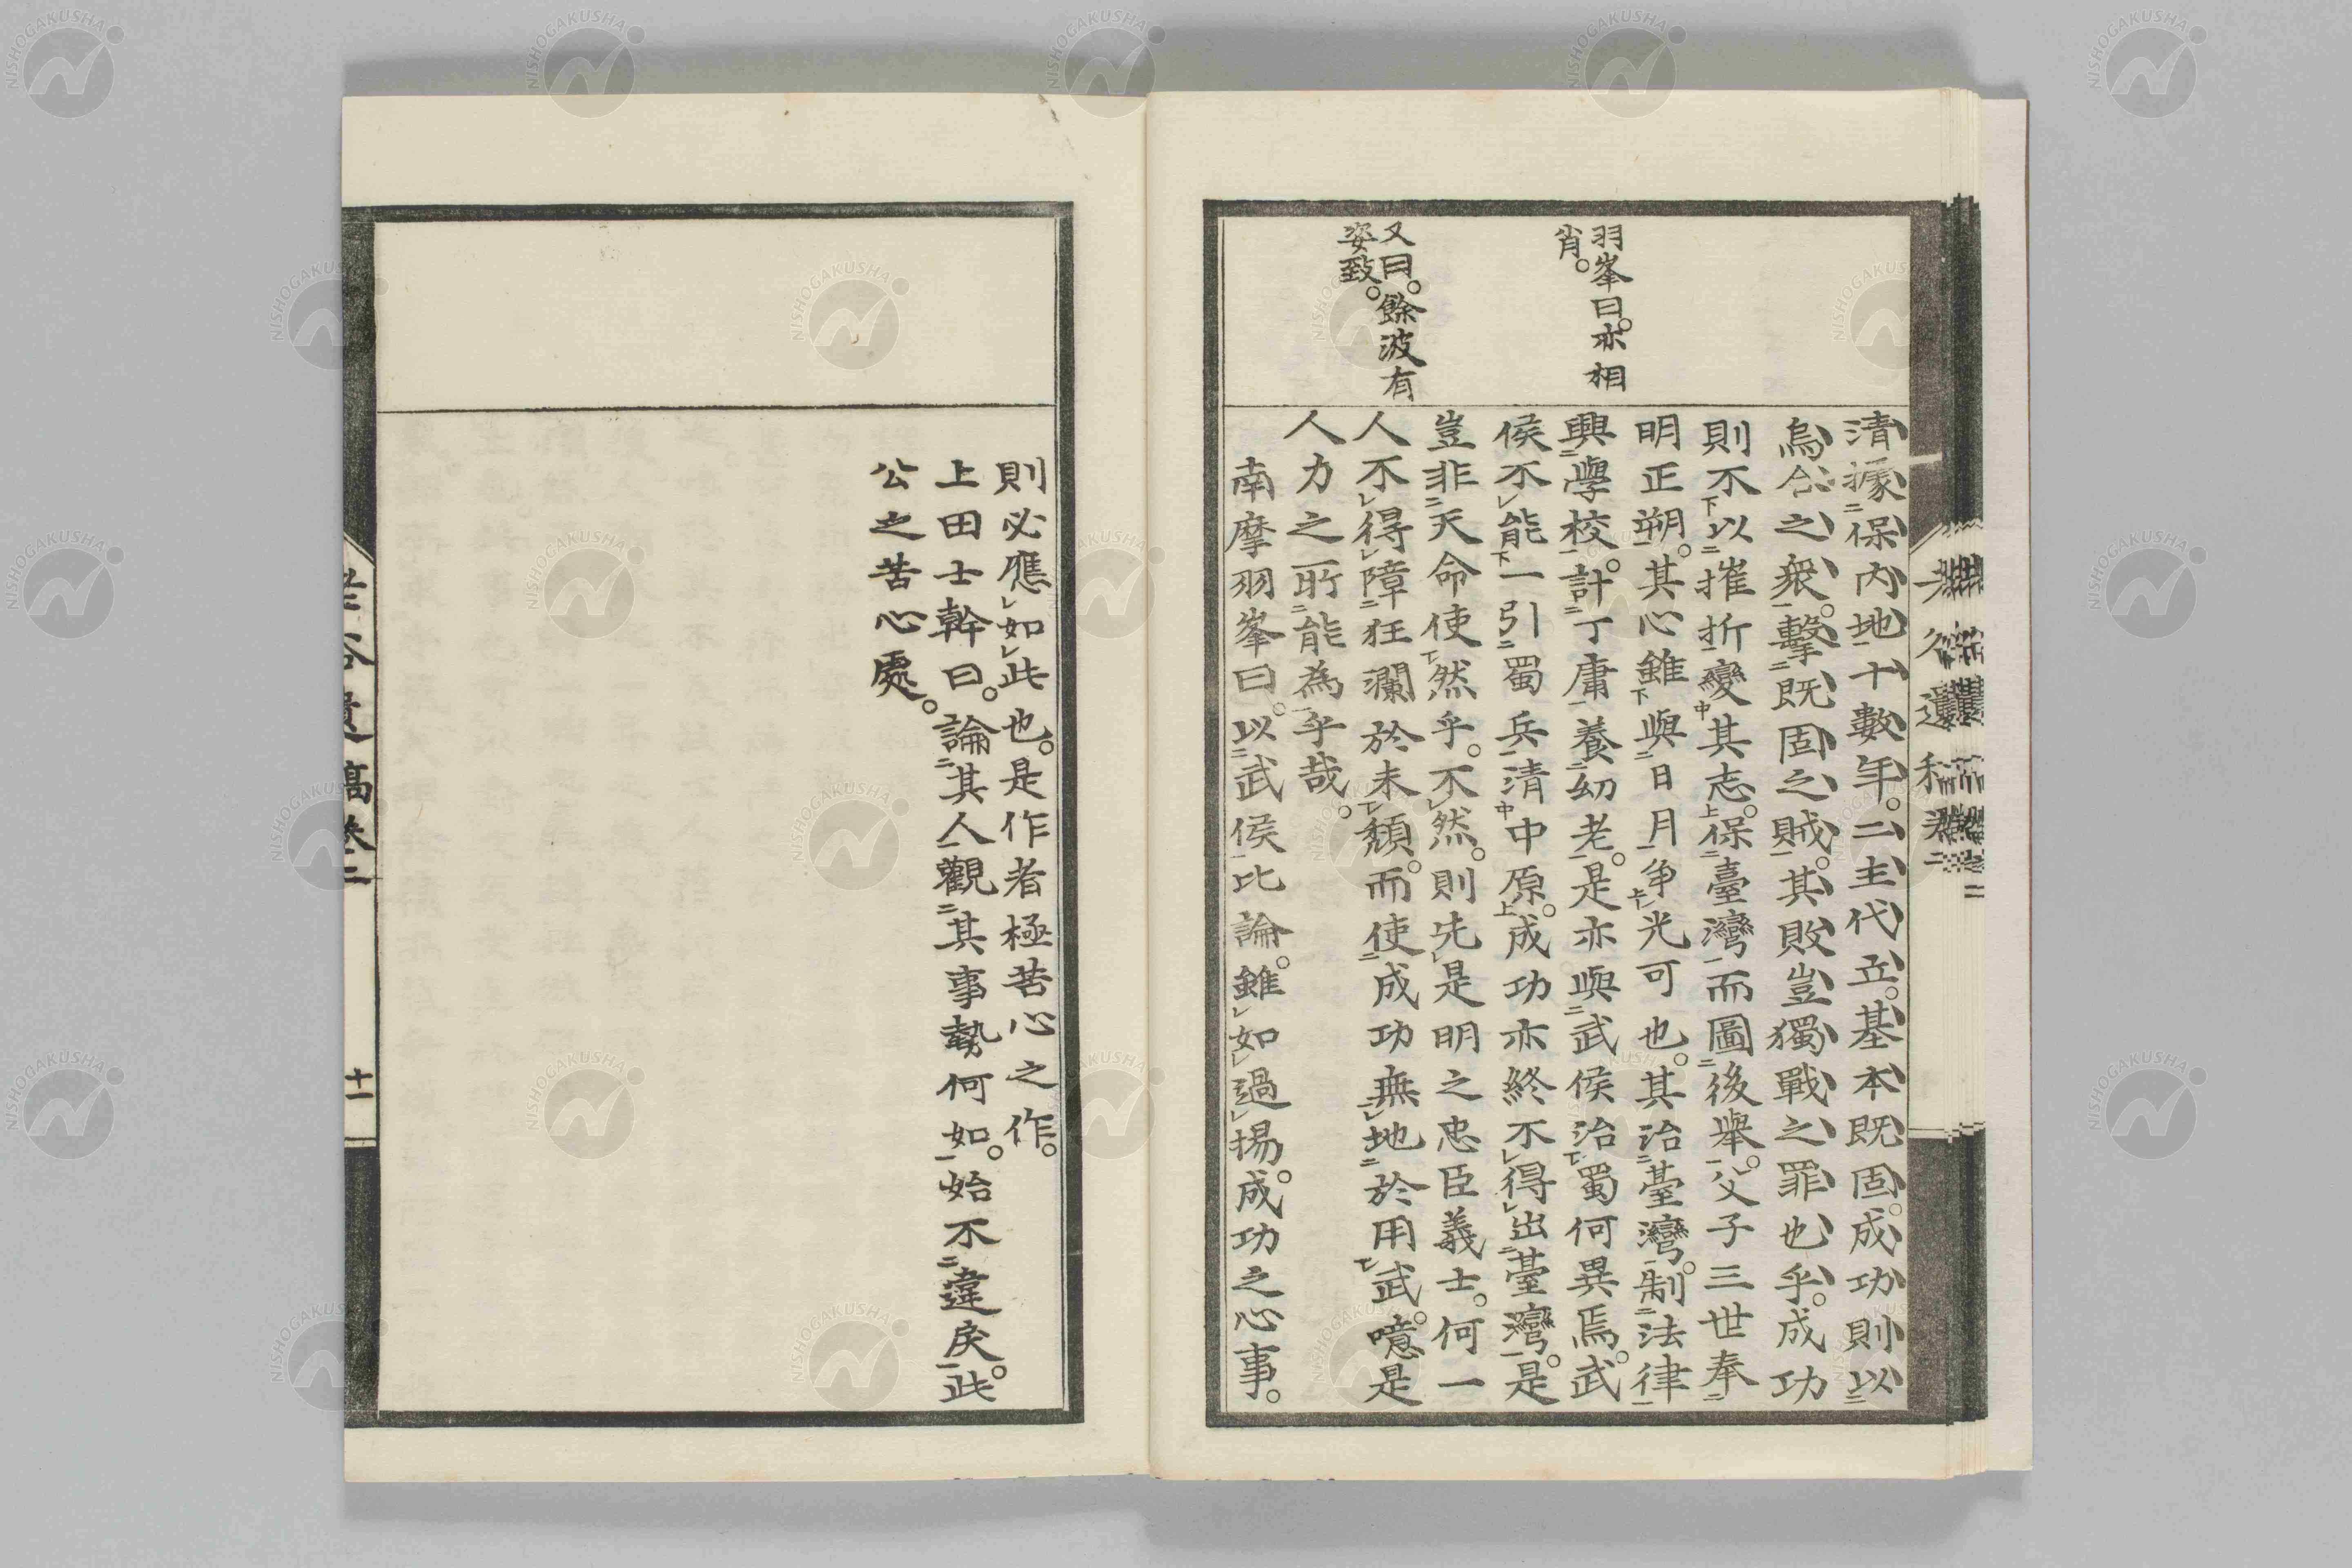 羽峯曰。亦相
肖。
又曰。餘波有
姿致。
清據保内地十數年。二主代立。基本既固。成功則以
烏合之衆。擊既固之賊。其敗豈獨戰之罪也乎。成功
則不以摧折變其志。保臺灣而圖後擧。父子三世奉
明正朔。其心雖與日月爭光可也。其治臺灣。制法律
興學校。計丁庸養幼老。是亦與武侯治蜀何異焉。武
侯不能一引蜀兵清中原。成功亦終不得出臺灣。是
豈非天命使然乎。不然。則先是明之忠臣義士。何一
人不得障狂瀾於未頽。而使成功無地於用武。噫是
人力之所能為乎哉。
南摩羽峯曰。以武侯比論。雖如過揚。成功之心事。
則必應如此也。是作者極苦心之作。
上田士幹曰。論其人觀其事勢何如。始不違戾。此
公之苦心處。
谷遺稿卷二
十一